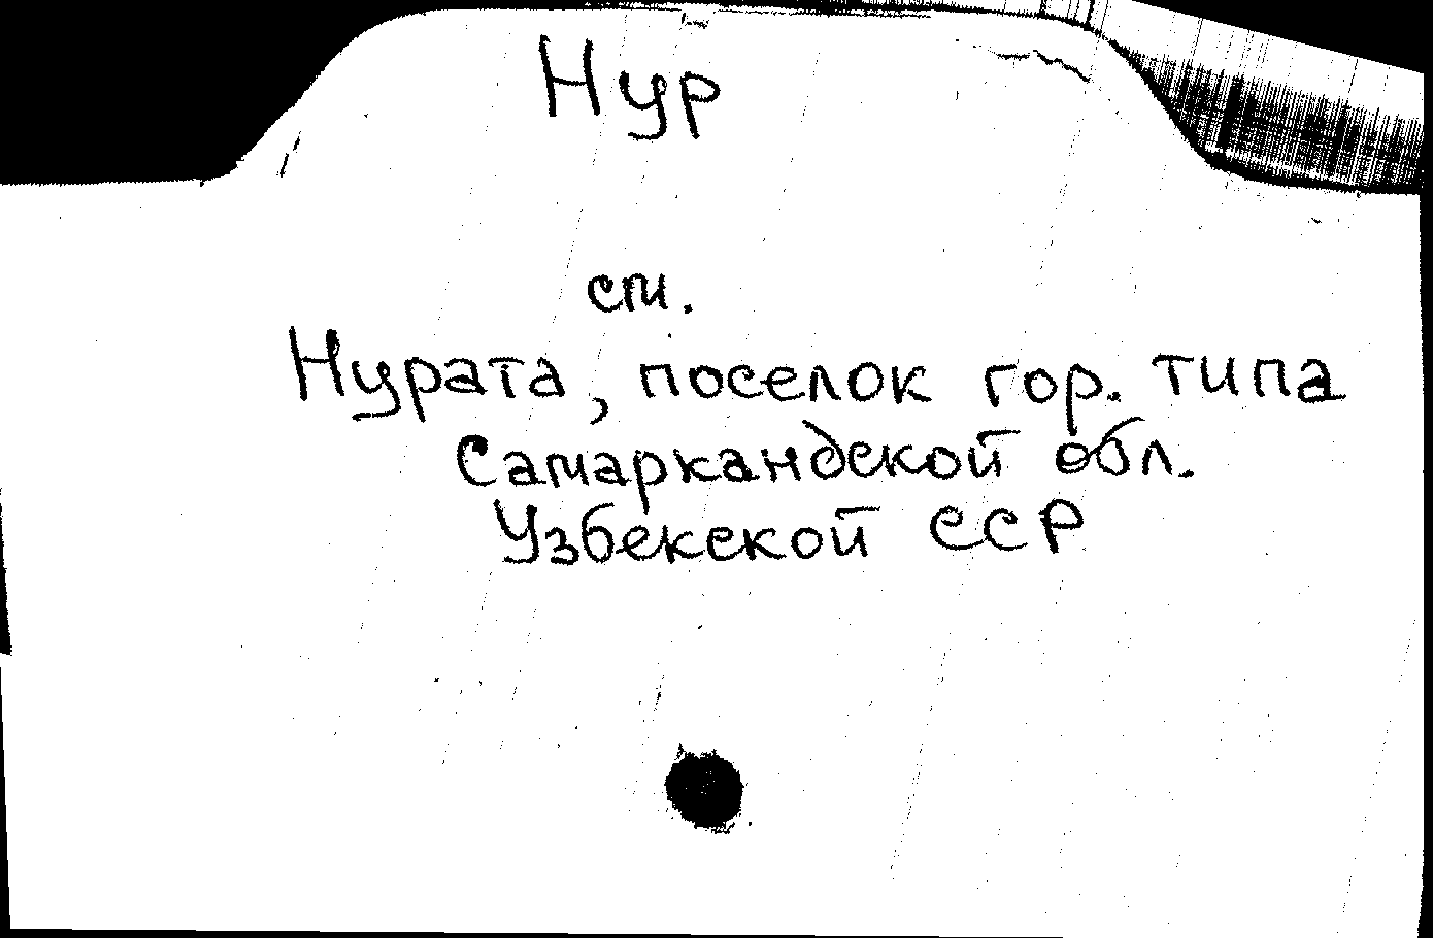 Нур
см.
Нурата, поселок гор. типа
Самаркандской обл.
Узбекской ССР